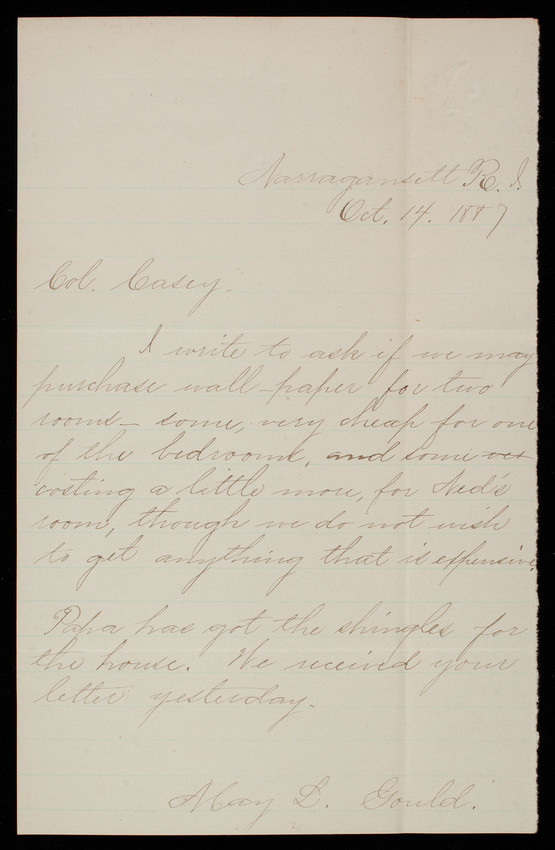 Narragansett R. I.
Oct. 14. 1887
Col. Casey.
I write to ask if we may
purchase wall-paper for two
rooms— some, very cheap for one
of the bedrooms, and some
costing a little more, for Ned's
room, though we do not wish
to get anything that is expensive.
Papa has got the shingles for
the house. We received your
letter yesterday.
May L. Gould.